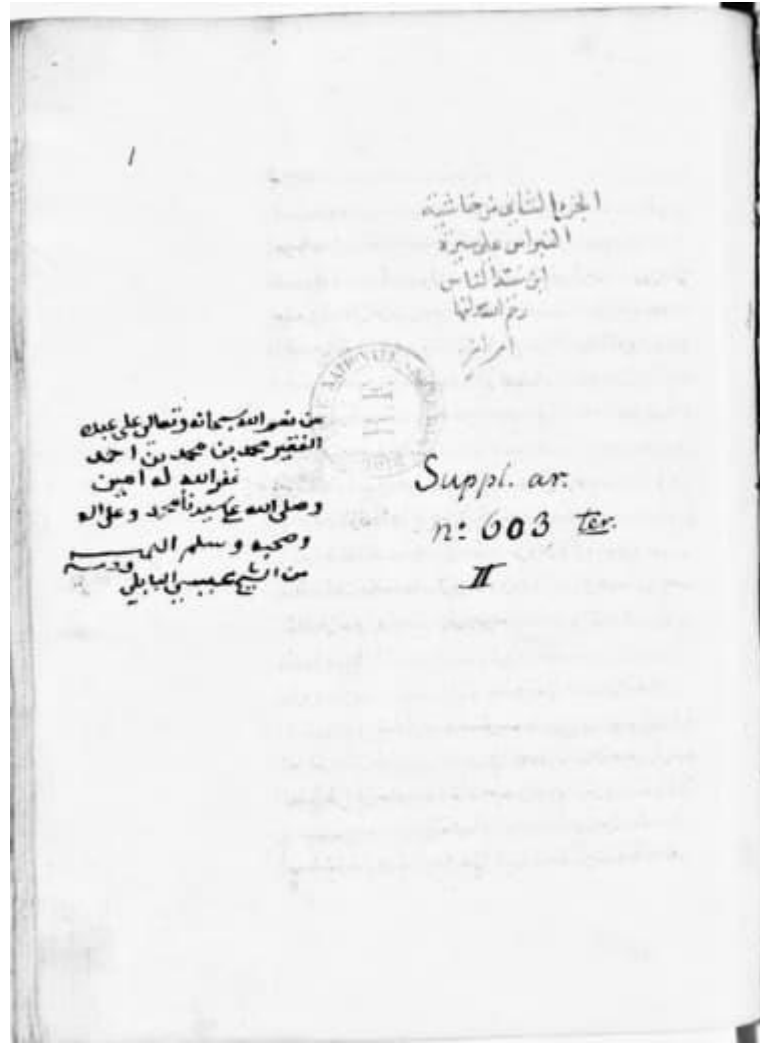 1
الجزء الثاني من حاشية
النبراس على سيرة
ابن سيد الناس
امين
من نعم الله سبحانه وتعالى على عبده
الفقير محمد بن محمد بن احمد
غفر الله له امين
وصلى الله على سيدنا محمد وعلى اله
وصحبه وسلم
من الشيخ البابلي
Suppl. ar.
nº 603 ter.
II